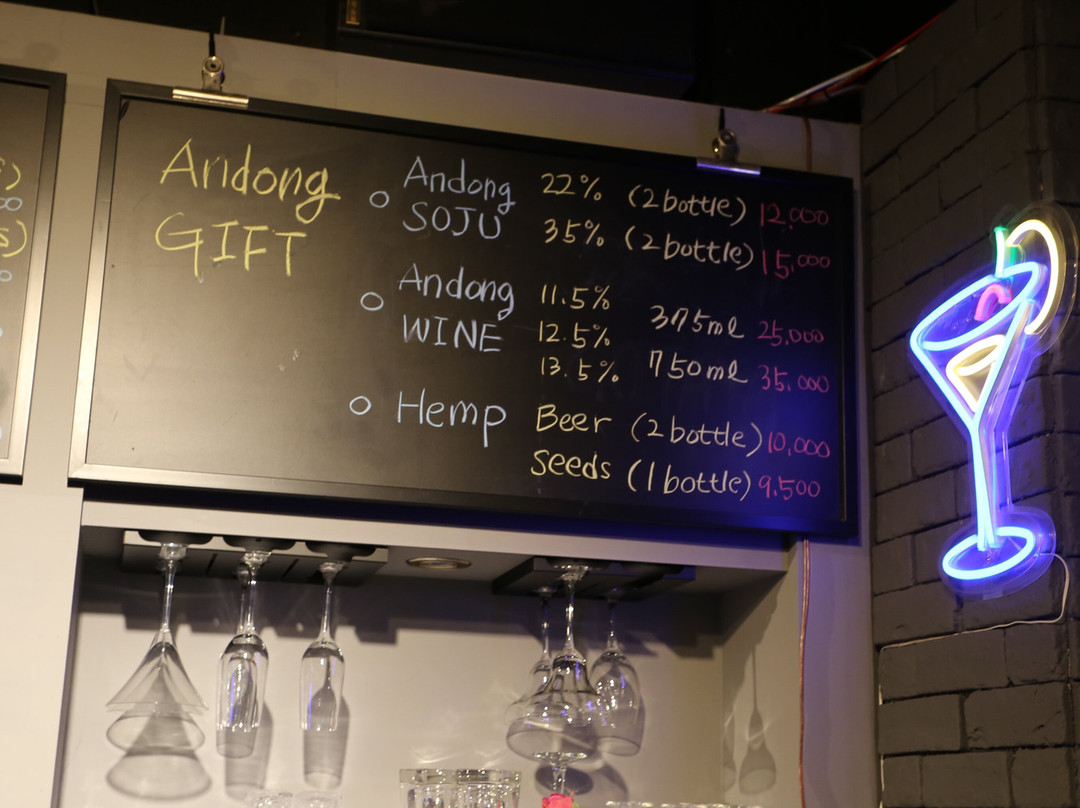 Andong
GIFT
Andong 22% (2 bottle) 12,000
SOJU 35% (2 bottle) 15,000
Andong 11.5%
WINE 12.5% 375ml 25,000
13.5% 750ml 35,000
Hemp Beer (2 bottle) 10,000
Seeds (1 bottle) 9,500